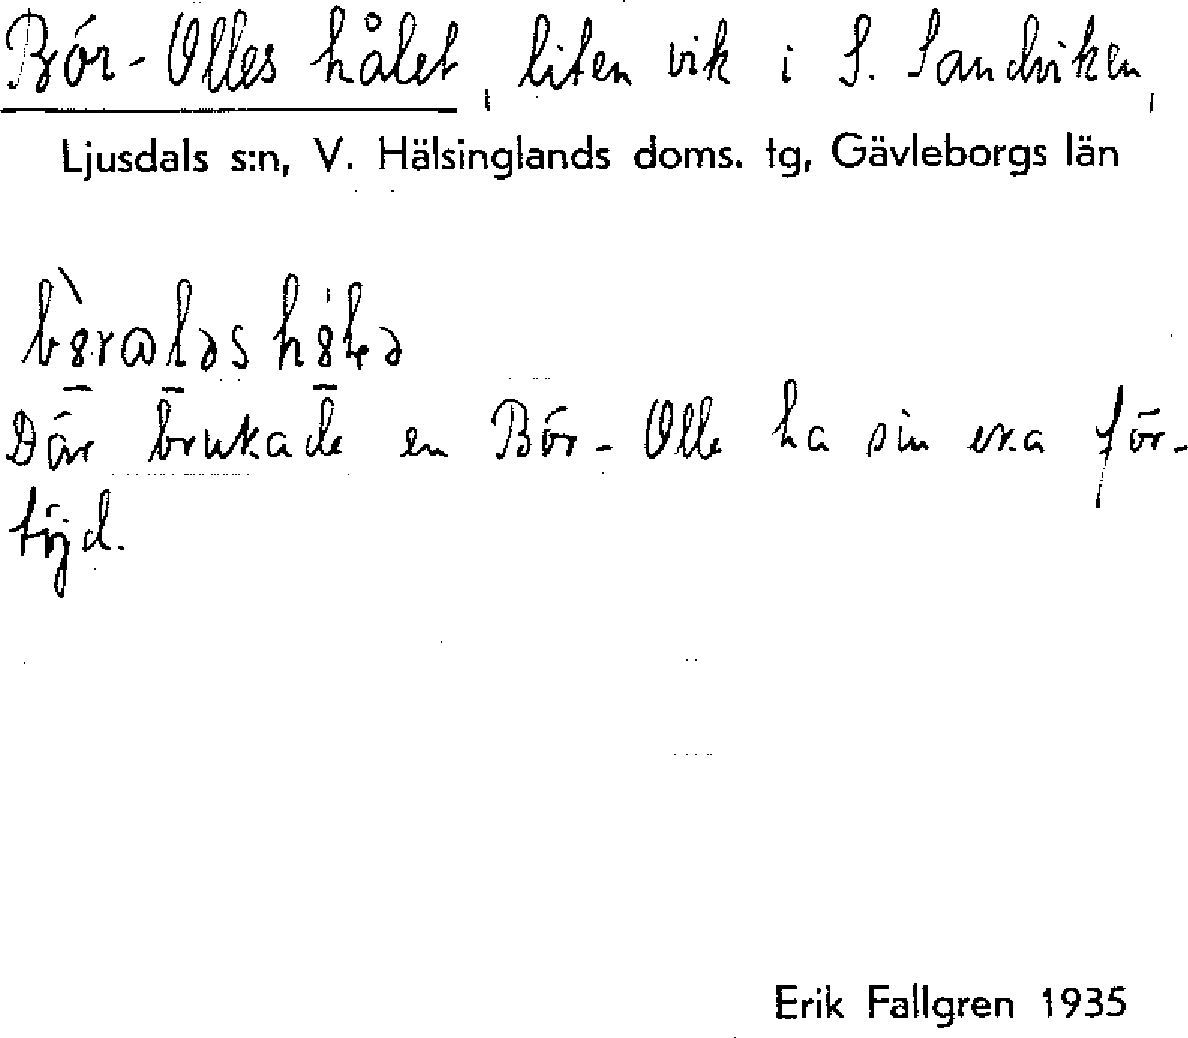 Bör-Olles hålet, liten vik i S. Sandviken,
Ljusdals s:n, V. Hälsinglands doms. tg, Gävleborgs län
Där brukade en Bör-Olle ha sin eka för-
töjd.
Erik Fallgren 1935